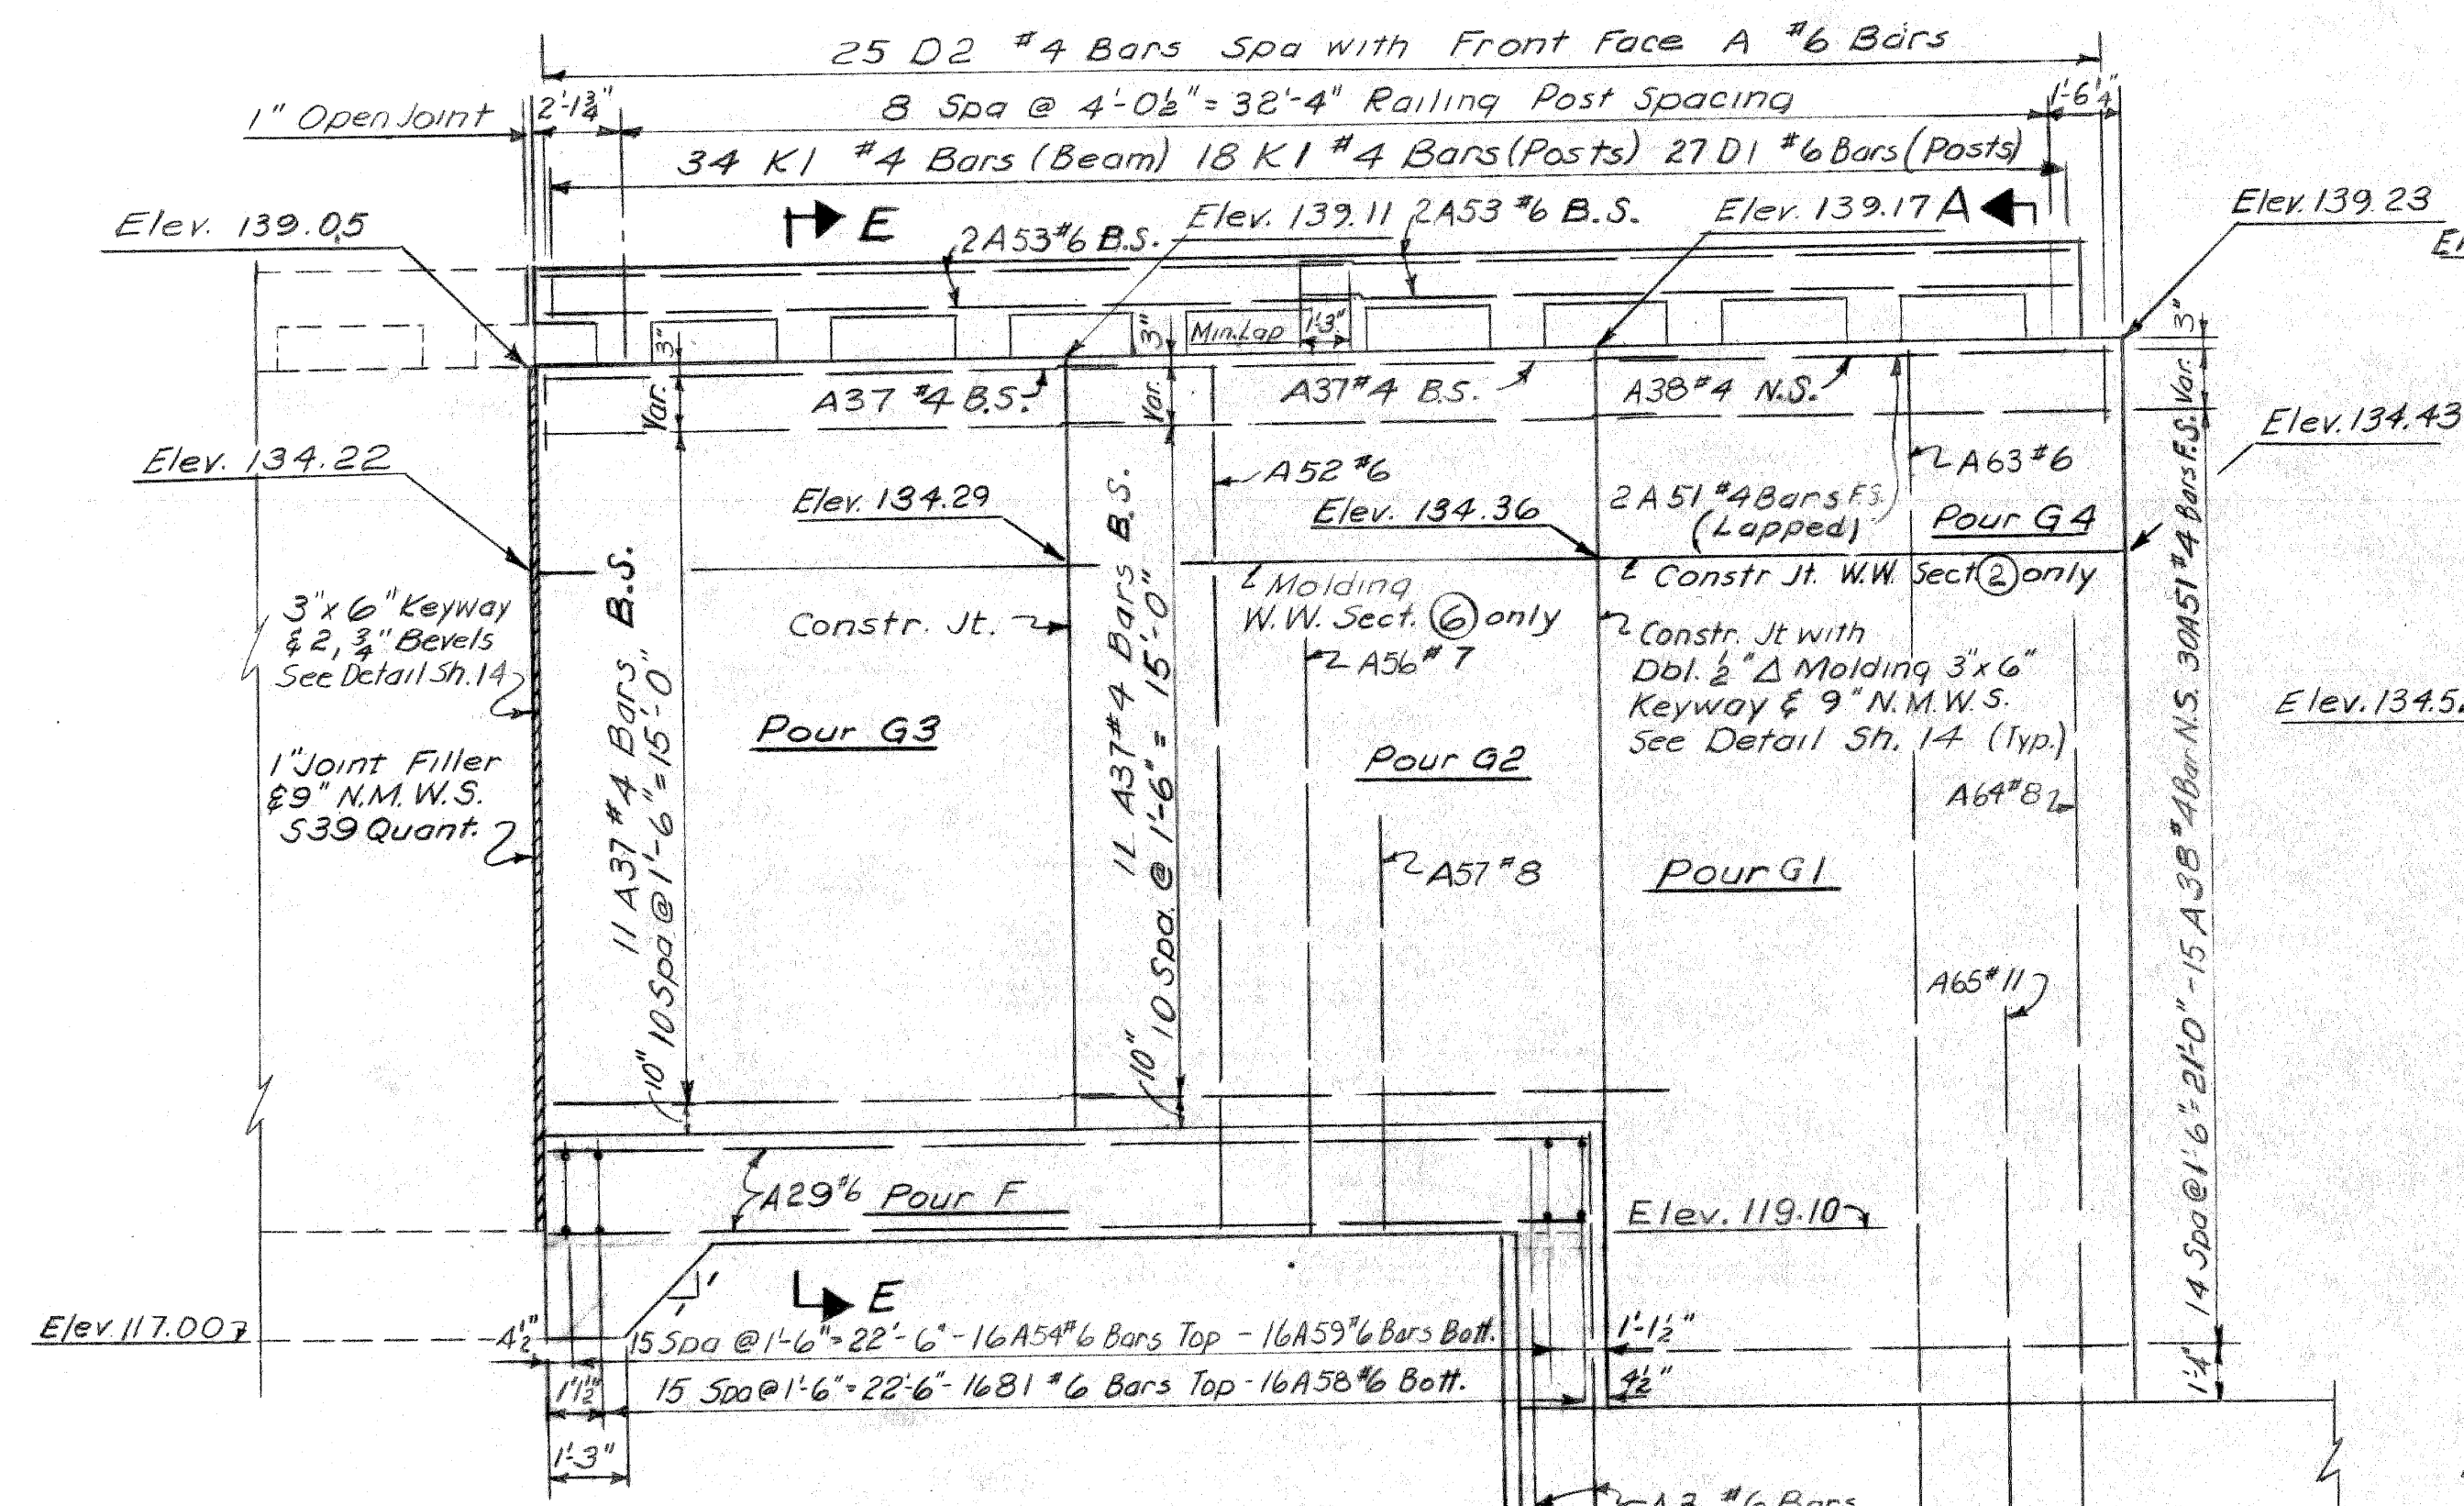 25 D2 #4 Bars Spa with Front Face A #6 Bars
1" Open Joint
2'-1¾"
8 Spa @ 4'-0½" = 32'-4" Railing Post Spacing
1'-6¼"
34 K1 #4 Bars (Beam) 18 K1 #4 Bars (Posts) 27 D1 #6 Bars (Posts)
Elev. 139.05
E
2A53 #6 B.S.
Elev. 139.11
2A53 #6 B.S.
Elev. 139.17
A
Elev. 139.23
3"
Var.
3"
Var.
Min. Lap
1'-3"
3"
Var.
A37 #4 B.S.
A37 #4 B.S.
A38 #4 N.S.
Elev. 134.43
Elev. 134.22
Elev. 134.29
A52 #6
Elev. 134.36
2 A51 #4 Bars F.S.
(Lapped)
A63 #6
Pour G4
3" x 6" Keyway
& 2, ¾" Bevels
See Detail Sh. 14
Constr. Jt.
Molding
W.W. Sect. 6 only
Constr Jt. W.W. Sect 2 only
A56 #7
Constr. Jt with
Dbl. ½" Δ Molding 3" x 6"
Keyway & 9" N.M.W.S.
See Detail Sh. 14 (Typ.)
Pour G3
Pour G2
1" Joint Filler
& 9" N.M.W.S.
S39 Quant.
11 A37 #4 Bars B.S.
10 Spa @ 1'-6" = 15'-0"
10"
11 A37 #4 Bars B.S.
10 Spa. @ 1'-6" = 15'-0"
10"
A57 #8
Pour G1
A64 #8
A65 #11
14 Spa @ 1'-6" = 21'-0" - 15 A38 #4 Bar N.S. 30A51 #4 Bars F.S.
1'-4"
A29 #6
Pour F
Elev. 119.10
E
1
1
Elev 117.00
4½"
15 Spa @ 1'-6" = 22'-6" - 16 A54 #6 Bars Top - 16 A59 #6 Bars Bott.
1'-1½"
1'1½"
15 Spa @ 1'-6" = 22'-6" - 16B1 #6 Bars Top - 16A58 #6 Bott.
4½"
1'-3"
Elev. 134.5
#6 Bars